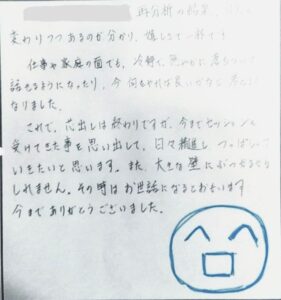 再分析の結果、
変わりつつあるのが分かり、嬉しさで一杯です
仕事や家庭の面でも、冷静で、
話せるようになったり、今何をやれば良いかなど
なりました。
これで、
は終わりですが、今までセッションを
受けてきた事を思い出して、日々
いきたいと思います。また、大きな壁にぶつかるかも
しれません。その時はお世話になるとおもいます
今までありがとうございました。